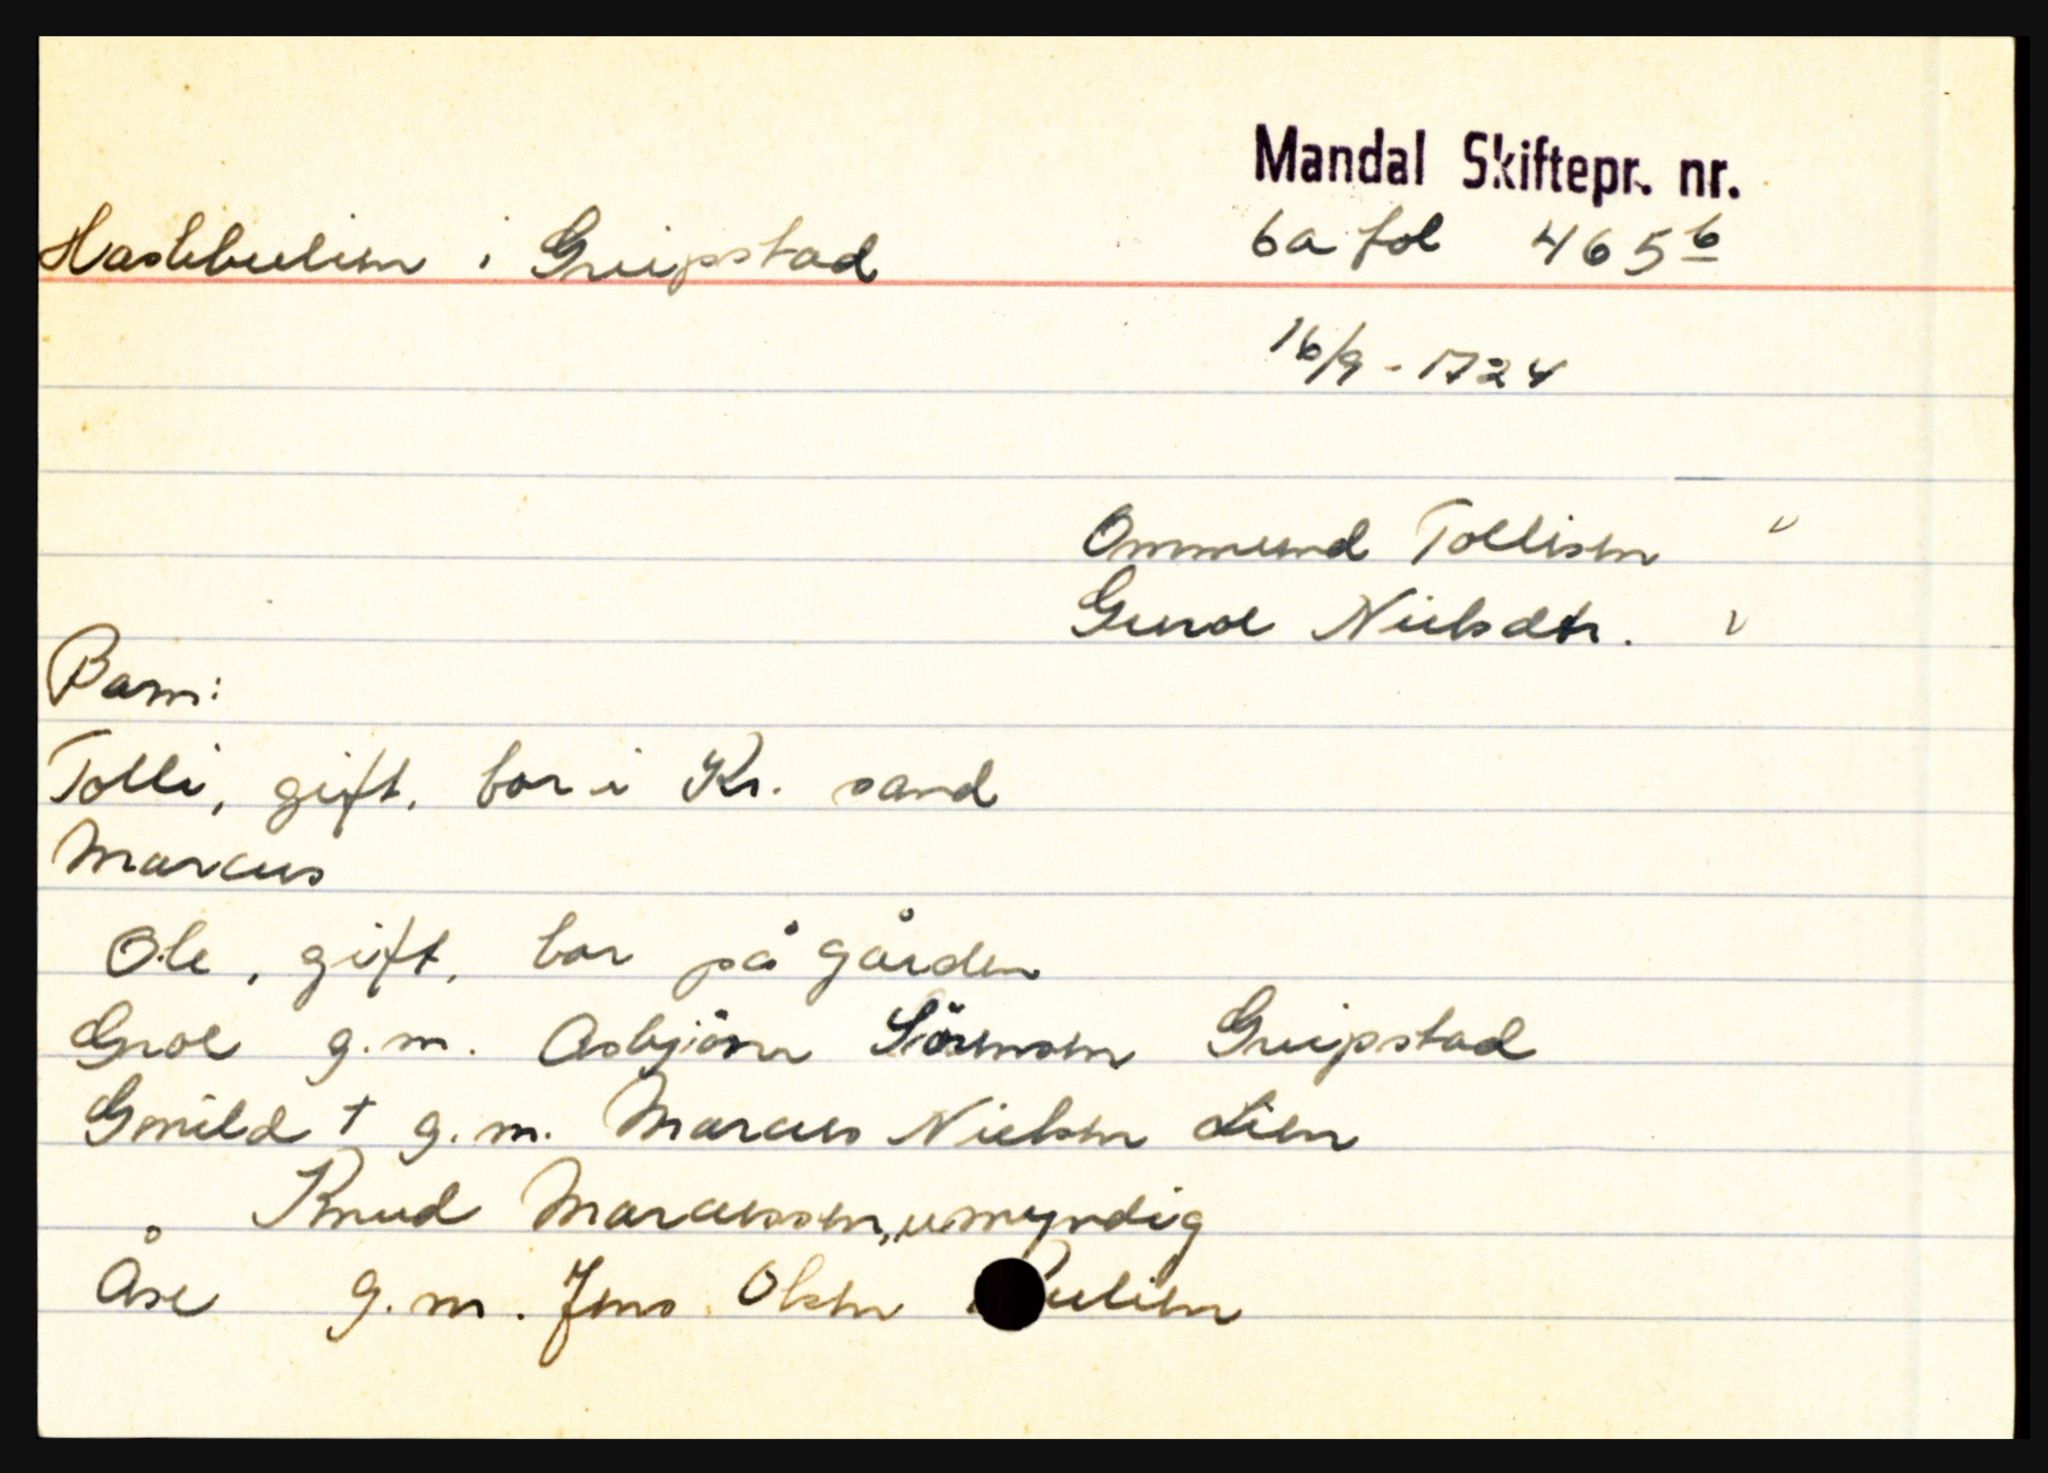 Mandal Skiftepr. nr.
Haslebulien i Greipstad 6a fol 465b
16/9 - 1724
Ommund Tollisen v
Guroe Nielsdtr. v
Barn:
Tolli, gift, bor i Kr. sand
Marcus
Ole, gift, bor på gården
Groe g.m. Asbjörn Sörensen Greipstad
Gonild † g.m. Marcus Nielsen Lien
Knud Marcussen, umyndig
Åse g.m. Jens Olsen